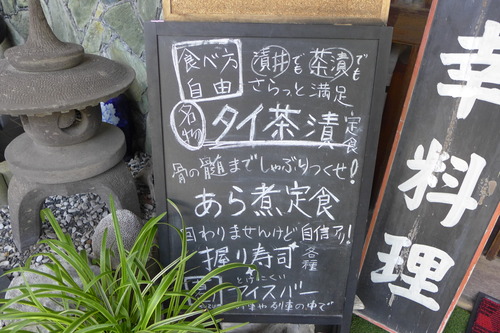 食べ方
自由
漬丼でも茶漬でも
さらっと満足
名物
タイ茶漬
定食
骨の髄までしゃぶりつくせ!
あら煮定食
回わりませんけど自信アリ!
握り寿司
各種
とけにくい
アイスバー
車や列車の中で
幸料理